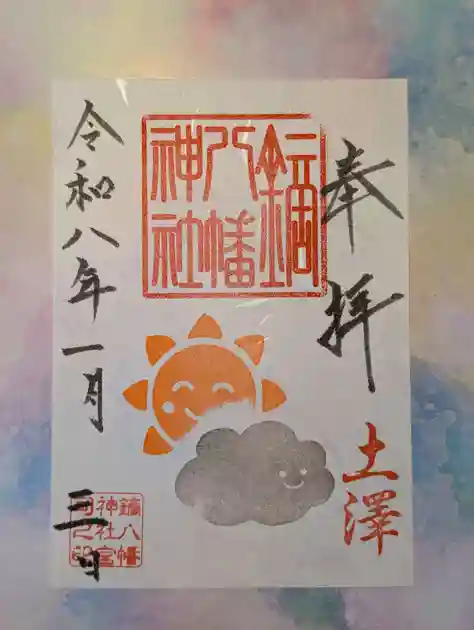 奉拝
土澤
鏑
八幡
神社
令和八年一月
三日
鏑八幡
神社宮
司之印